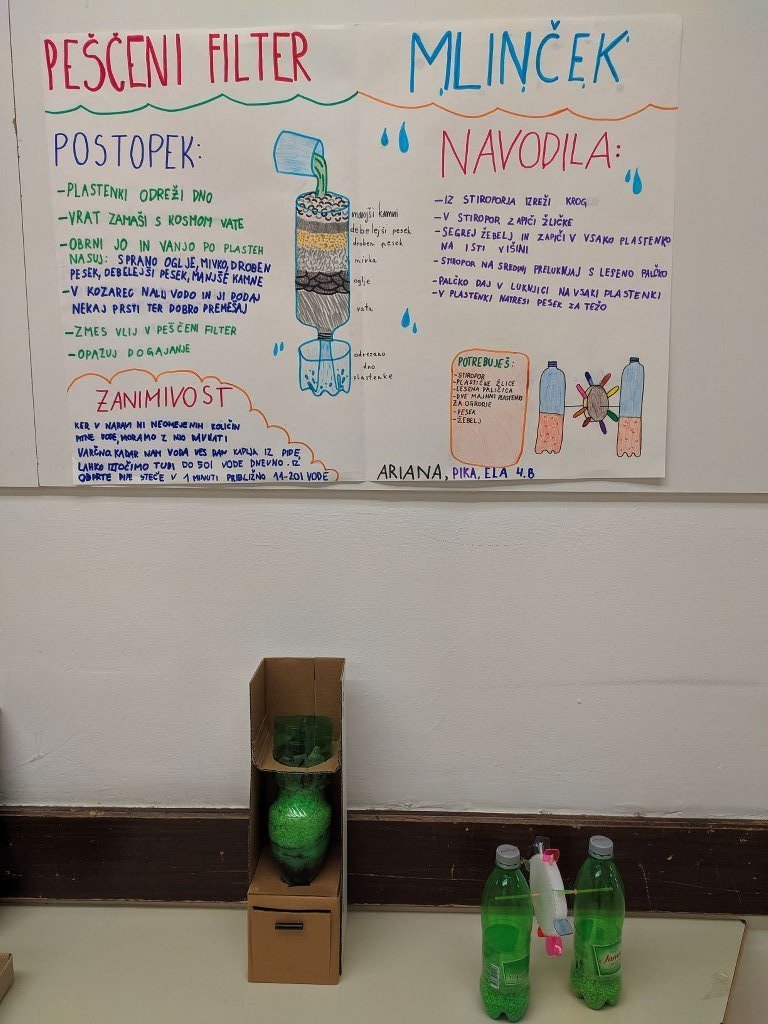 PEŠČENI FILTER
POSTOPEK:
-PLASTENKI ODREŽI DNO
-VRAT ZAMAŠI S KOSMOM VATE
-OBRNI JO IN VANJO PO PLASTEH
NASUJ: SPRANO OGLJE, MIVKO, DROBEN
PESEK, DEBELEJŠI PESEK, MANJŠE KAMNE
-V KOZAREC NALIJ VODO IN JI DODAJ
NEKAJ PRSTI TER DOBRO PREMEŠAJ
-ZMES VLIJ V PEŠČENI FILTER
-OPAZUJ DOGAJANJE
manjši kamni
debelejši pesek
droben pesek
mivka
oglje
vata
odrezano
dno
plastenke
ZANIMIVOST
KER V NARAVI NI NEOMEJENIH KOLIČIN
PITNE VODE, MORAMO Z NJO RAVNATI
VARČNO. KADAR NAM VODA VES DAN KAPLJA IZ PIPE,
LAHKO IZTOČIMO TUDI DO 50l VODE DNEVNO. IZ
ODPRTE PIPE STEČE V 1 MINUTI PRIBLIŽNO 14-20l VODE
MLINČEK
NAVODILA:
-IZ STIROPORJA IZREŽI KROG
-V STIROPOR ZAPIČI ŽLIČKE
-SEGREJ ŽEBELJ IN ZAPIČI V VSAKO PLASTENKO
NA ISTI VIŠINI
-STIROPOR NA SREDINI PRELUKNJAJ S LESENO PALČKO
-PALČKO DAJ V LUKNJICI NA VSAKI PLASTENKI
-V PLASTENKI NATRESI PESEK ZA TEŽO
POTREBUJEŠ:
-STIROPOR
-PLASTIČNE ŽLICE
-LESENA PALIČICA
-DVE MAJHNI PLASTENKI
ZA OGRODJE
-PESEK
-ŽEBELJ
ARIANA, PIKA, ELA 4.B